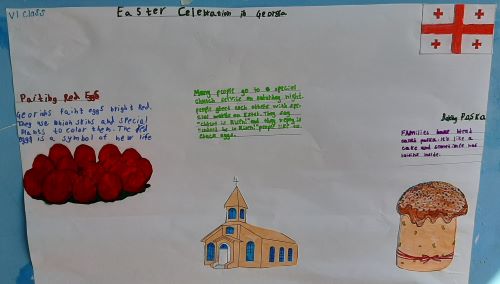 VI Class
Easter Celebration in Georgia
Painting Red Eggs
Georians Paint eggs bright Red.
They use onion skins and special
Plants to color them. The Red
eggs is a symbol of new life
Many people go to a special
church service on saturday night.
people greet each others with spe-
cial words on Easter. They say
"christ is Risen." and they reply is
people like to
crack eggs.
Paska
Families bake bread
called paska. It's like a
cake and sometimes has
raisins inside.